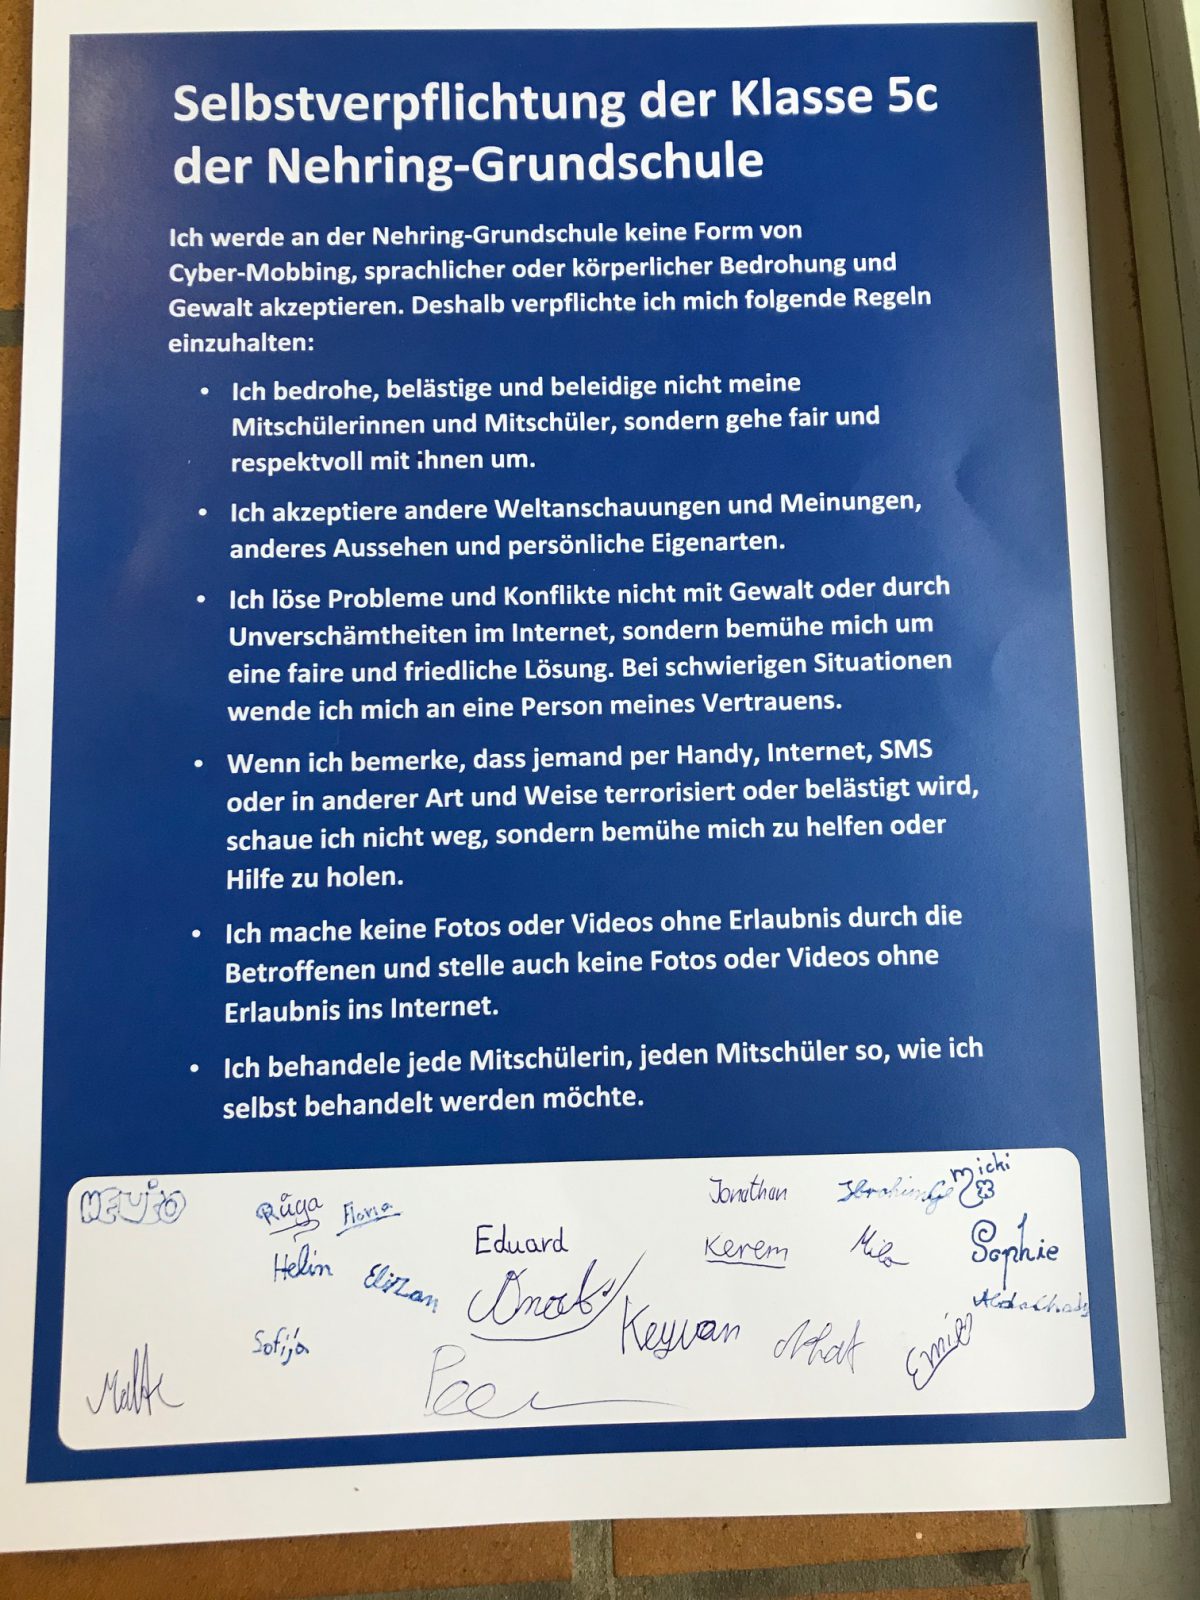 Selbstverpflichtung der Klasse 5c
der Nehring-Grundschule
Ich werde an der Nehring-Grundschule keine Form von
Cyber-Mobbing, sprachlicher oder körperlicher Bedrohung und
Gewalt akzeptieren. Deshalb verpflichte ich mich folgende Regeln
einzuhalten:
• Ich bedrohe, belästige und beleidige nicht meine
Mitschülerinnen und Mitschüler, sondern gehe fair und
respektvoll mit ihnen um.
• Ich akzeptiere andere Weltanschauungen und Meinungen,
anderes Aussehen und persönliche Eigenarten.
• Ich löse Probleme und Konflikte nicht mit Gewalt oder durch
Unverschämtheiten im Internet, sondern bemühe mich um
eine faire und friedliche Lösung. Bei schwierigen Situationen
wende ich mich an eine Person meines Vertrauens.
• Wenn ich bemerke, dass jemand per Handy, Internet, SMS
oder in anderer Art und Weise terrorisiert oder belästigt wird,
schaue ich nicht weg, sondern bemühe mich zu helfen oder
Hilfe zu holen.
• Ich mache keine Fotos oder Videos ohne Erlaubnis durch die
Betroffenen und stelle auch keine Fotos oder Videos ohne
Erlaubnis ins Internet.
• Ich behandele jede Mitschülerin, jeden Mitschüler so, wie ich
selbst behandelt werden möchte.
Jonathan Micki
Eduard Kerem Sophie
Helin
Keyvan
Sofija
Malte Peer